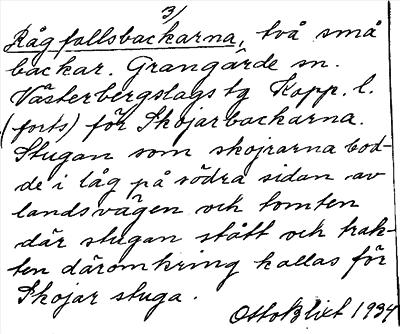 3/
Rågfallsbackarna, två små
backar. Grangärde sn.
Västerbergslags tg Kopp. l.
(forts) för Skojarbackarna.
Stugan som skojrarna bod-
de i låg på södra sidan av
landsvägen och tomten
där stugan stått och trak-
ten däromkring kallas för
Skojar stuga.
Otto Blixt 1934